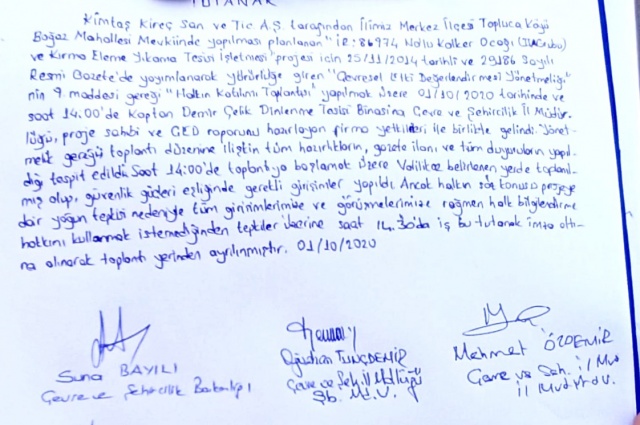 TUTANAK
Kimtaş Kireç San ve Tic A.Ş. tarafından İlimiz Merkez İlçesi Topluca Köyü
Boğaz Mahallesi Mevkiinde yapılması planlanan "İR: 86974 Nolu Kalker Ocağı (II.Grubu)
ve Kırma Eleme Yıkama Tesisi İşletmesi" projesi için 25/11/2014 tarihli ve 29186 Sayılı
Resmi Gazete'de yayımlanarak yürürlüğe giren "Çevresel Etki Değerlendirmesi Yönetmeliği"
nin 9. maddesi gereği "Halkın Katılımı Toplantısı" yapılmak üzere 01/10/2020 tarihinde ve
saat 14.00'de Kaptan Demir Çelik Dinlenme Tesisi Binasına Çevre ve Şehircilik İl Müdür-
lüğü, proje sahibi ve ÇED raporunu hazırlayan firma yetkilileri ile birlikte gelindi. Yönet-
melik gereği toplantı düzenine ilişkin tüm hazırlıkların, gazete ilanı ve tüm duyuruların yapıl-
dığı tespit edildi. Saat 14:00'de toplantıya başlamak üzere Valilikçe belirlenen yerde toplanıl-
mış olup, güvenlik güçleri eşliğinde gerekli girişimler yapıldı. Ancak halkın söz konusu projeye
dair yoğun tepkisi nedeniyle tüm girişimlerimize ve görüşmelerimize rağmen halk bilgilendirme
hakkını kullanmak istemediğinden tepkiler üzerine saat 14.30'da iş bu tutanak imza altı-
na alınarak toplantı yerinden ayrılınmıştır. 01/10/2020
Suna BAYILI
Çevre ve Şehircilik Bakanlığı
Oğuzhan TUNÇDEMİR
Çevre ve Şeh. İl Müdürlüğü
Şb. Md. V.
Mehmet ÖZDEMİR
Çevre ve Şeh. İl Müd
İl Müdür V.